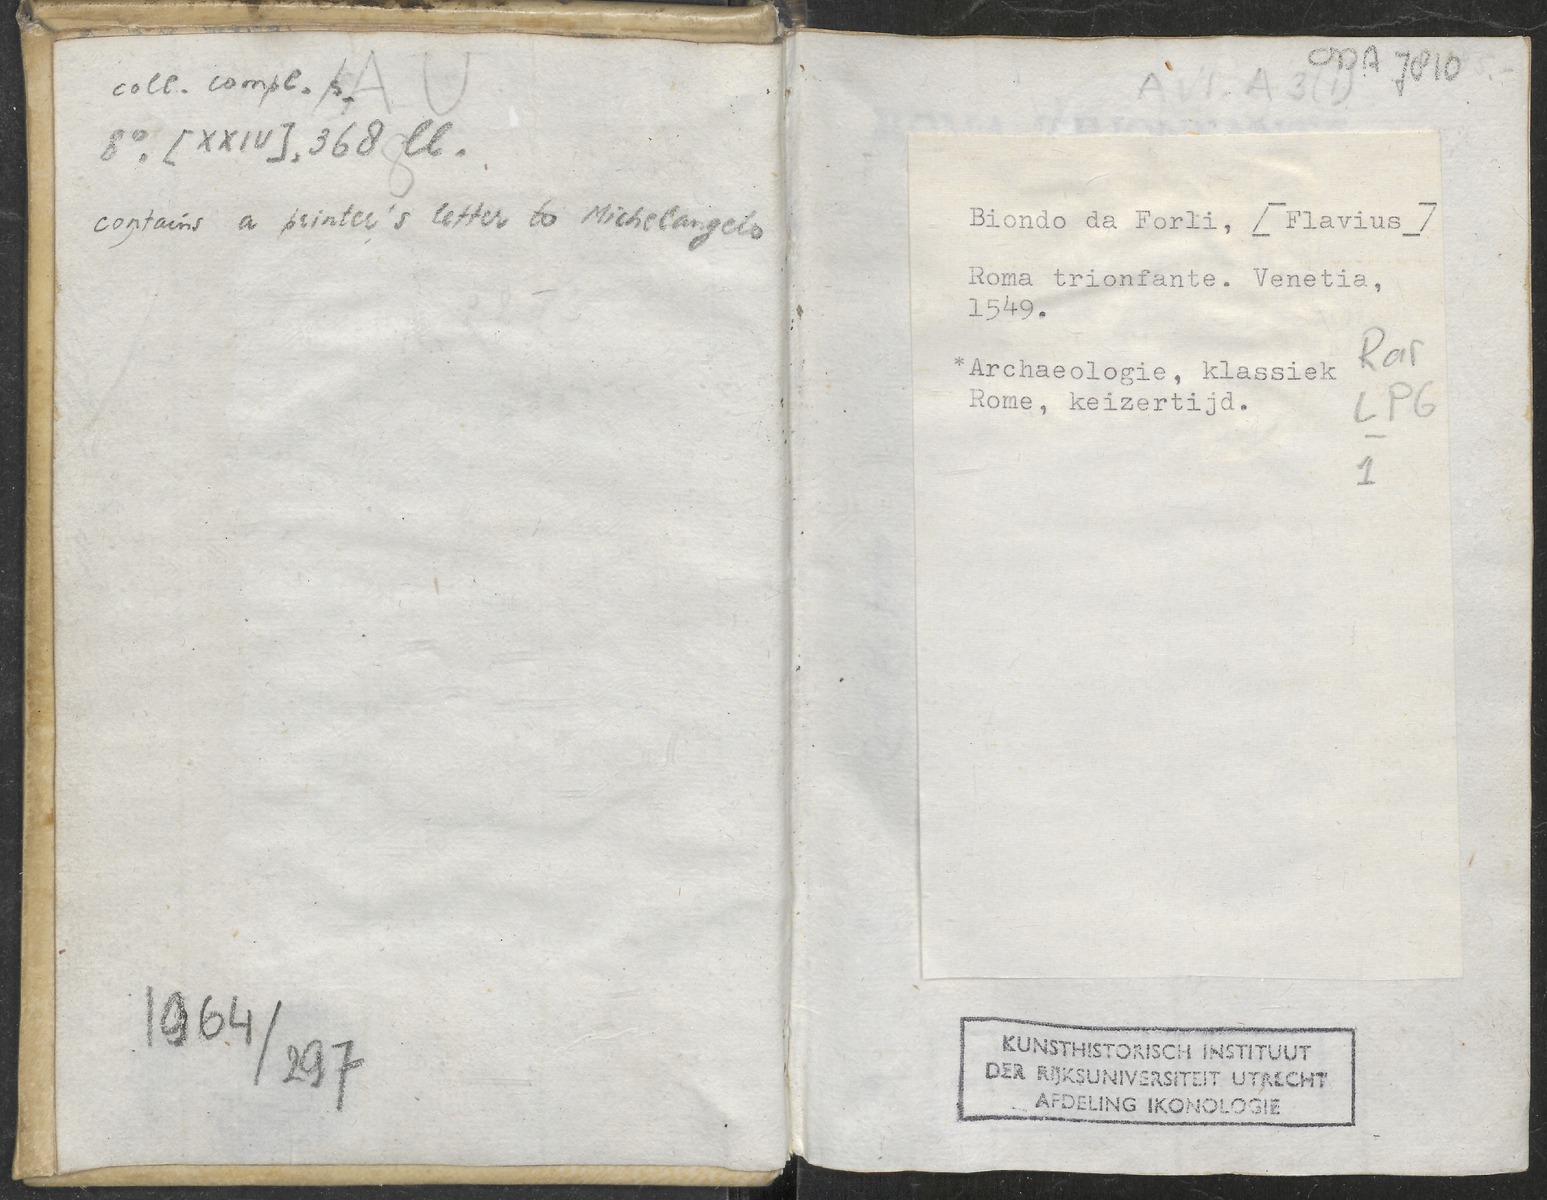 coll. compl. p.
AU
8°. [XXIV], 368 ll.
contains a printer's letter to Michelangelo
1964/297
ODA 7810
A VI. A 3(1)
Biondo da Forli, [Flavius]
Roma trionfante. Venetia,
1549.
*Archaeologie, klassiek
Rome, keizertijd.
Rar
LPG
1
KUNSTHISTORISCH INSTITUUT
DER RIJKSUNIVERSITEIT UTRECHT
AFDELING IKONOLOGIE